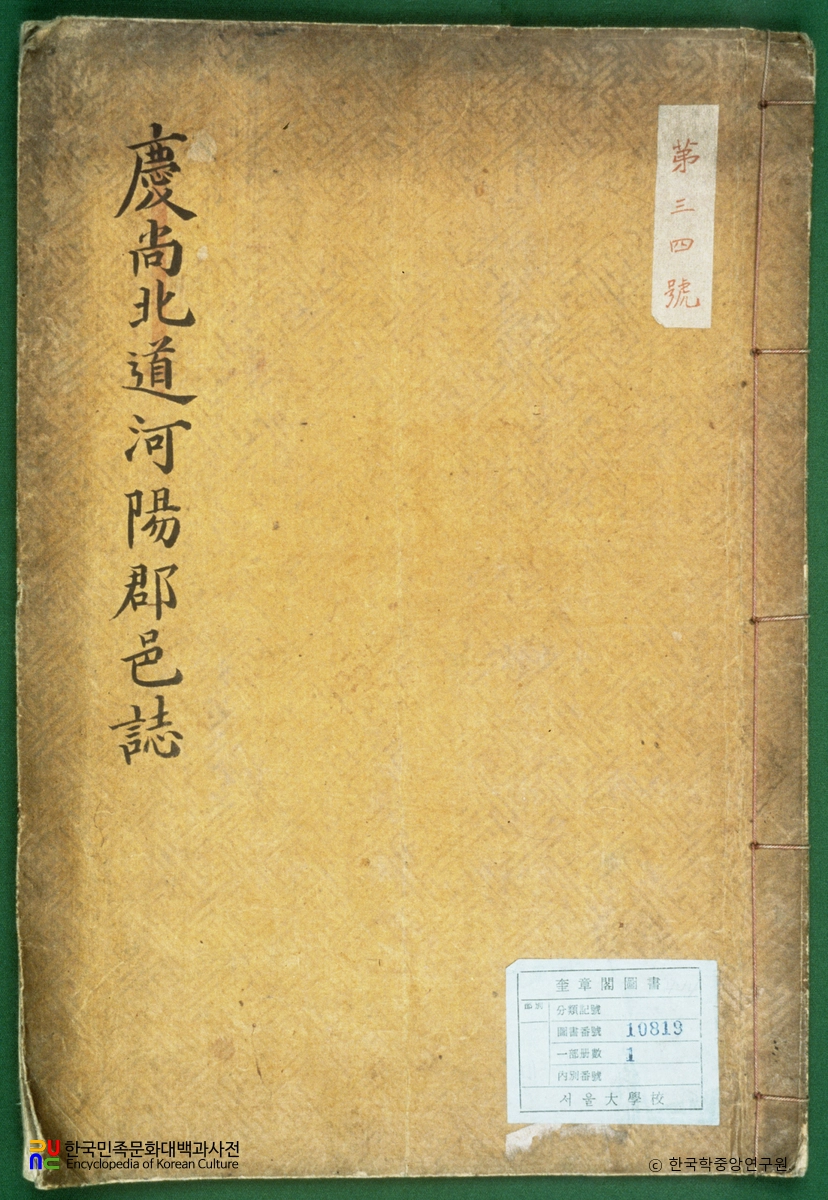 第三四號
慶尙北道河陽郡邑誌
奎章閣圖書
部別
分類記號
圖書番號 10819
一部册數 1
內別番號
서울大學校
한국민족문화대백과사전
Encyclopedia of Korean Culture
© 한국학중앙연구원